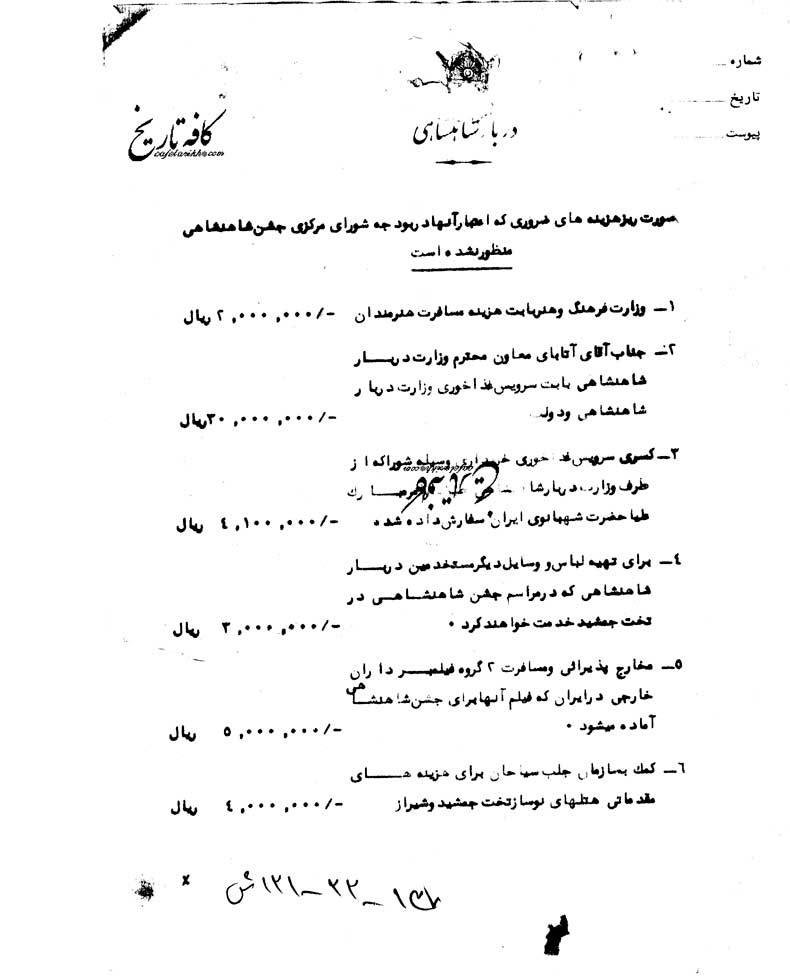 شماره
تاریخ
پیوست
دربار شاهنشاهی
کافه تاریخ
cafetarikh.com
صورت ریزهزینه های ضروری که اعتبارآنهادربودجه شورای مرکزی جشن شاهنشاهی
منظورنشده است
۱ــ وزارت فرهنگ وهنربابت هزینه مسافرت هنرمندان ‎۲,۰۰۰,۰۰۰/- ریال
۲ــ جناب آقای آتابای معاون محترم وزارت دربـــار
شاهنشاهی بابت سرویس غذاخوری وزارت دربار
شاهنشاهی ودولت ‎۳۰,۰۰۰,۰۰۰/- ریال
۳ــ کسری سرویس غذاخوری خریداری وسیله شوراکه از
طرف وزارت دربارشا
علیاحضرت شهبانوی ایران سفارش داده شده ‎۴,۱۰۰,۰۰۰/- ریال
۴ــ برای تهیه لباس و وسایل دیگرمستخدمین دربـــار
شاهنشاهی که درمراسم جشن شاهنشـــاهـی در
تخت جمشید خدمت خواهندکرد ۰ ‎۳,۰۰۰,۰۰۰/- ریال
۵ــ مخارج پذیرائی ومسافرت ۲ گروه فیلمبـــرداران
خارجی درایران که فیلم آنهابرای جشن شاهنشـاهی
آماده میشود ۰ ‎۵,۰۰۰,۰۰۰/- ریال
۶ــ کمک بسازمان جلب سیاحان برای هزینه هـــای
مقدماتی هتلهای نوسازتخت جمشید وشیراز ‎۴,۰۰۰,۰۰۰/- ریال